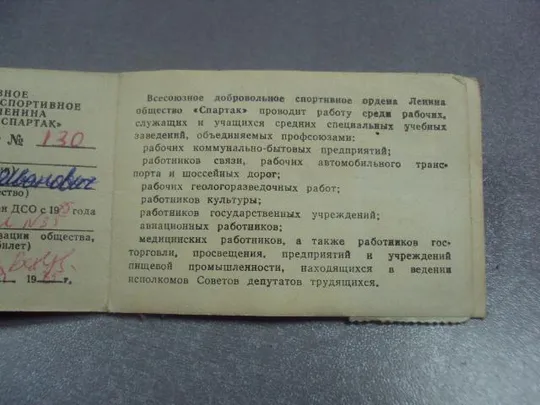 НОЕ
СПОРТИВНОЕ
ЛЕНИНА
СПАРТАК»
№ 130
Иванович
ество)
ен ДСО с 19 года
зации общества,
билет)
19 г.
Всесоюзное добровольное спортивное ордена Ленина
общество «Спартак» проводит работу среди рабочих,
служащих и учащихся средних специальных учебных
заведений, объединяемых профсоюзами:
рабочих коммунально-бытовых предприятий;
работников связи, рабочих автомобильного транс
порта и шоссейных дорог;
рабочих геологоразведочных работ;
работников культуры;
работников государственных учреждений;
авиационных работников;
медицинских работников, а также работников гос-
торговли, просвещения, предприятий и учреждений
пищевой промышленности, находящихся в ведении
исполкомов Советов депутатов трудящихся.